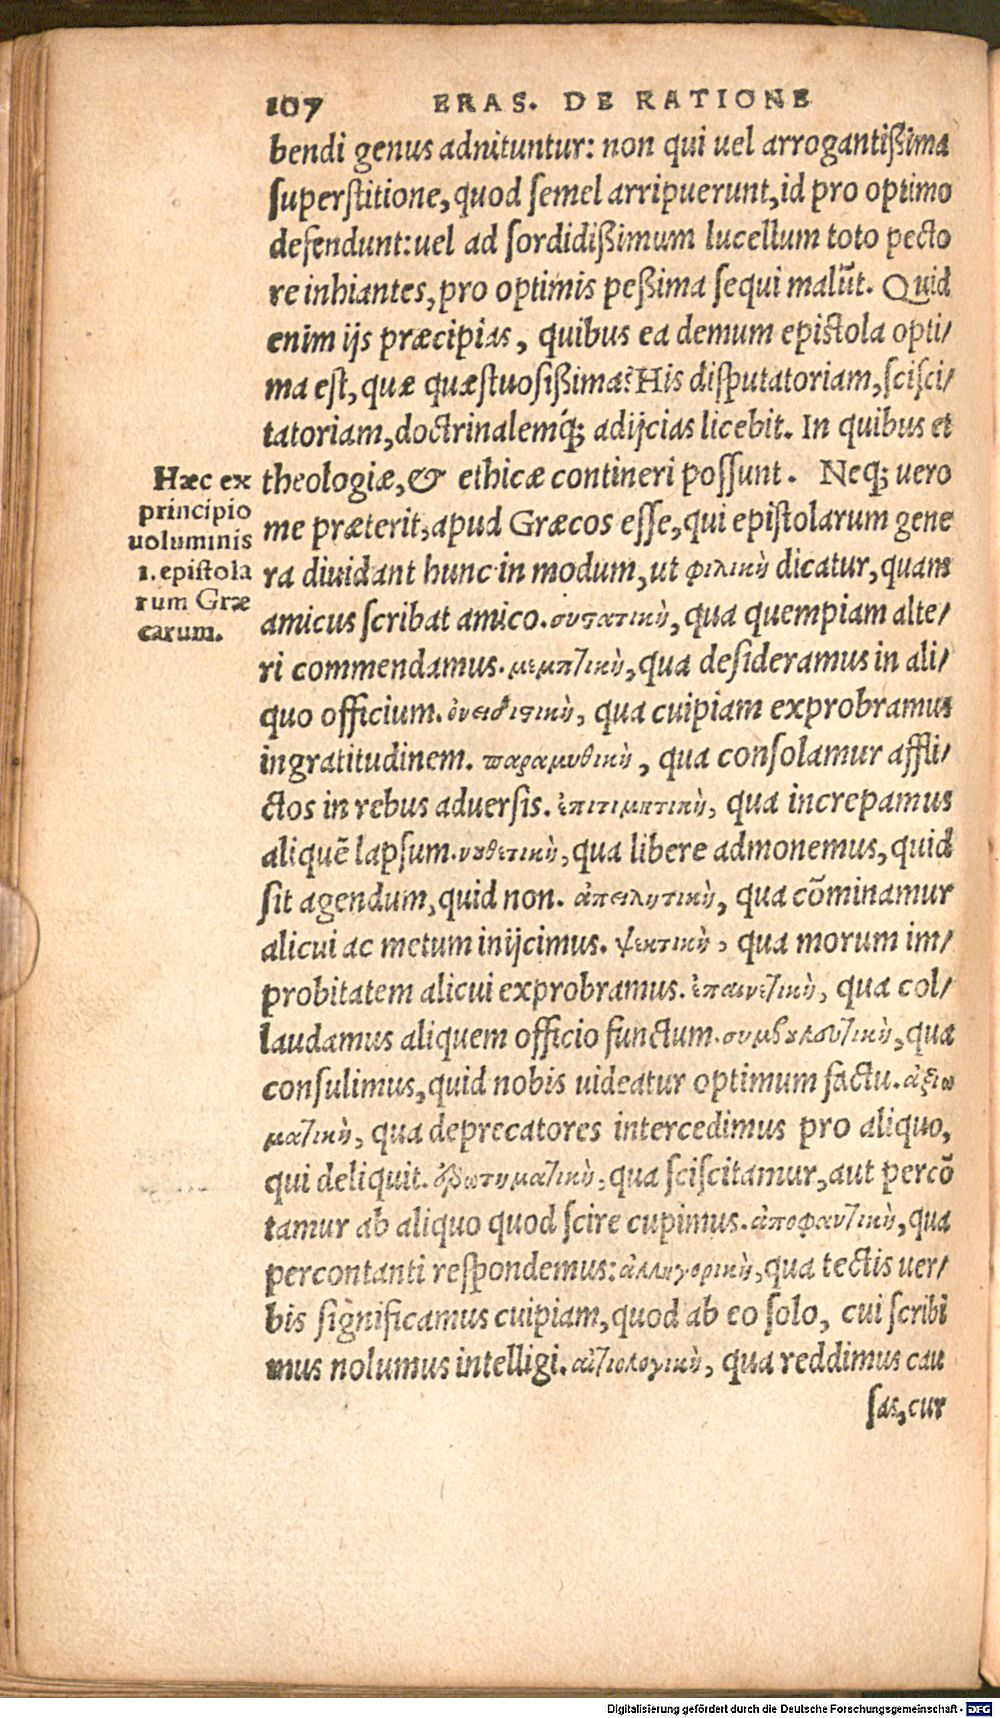 107 ERAS. DE RATIONE
bendi genus adnituntur: non qui uel arrogantißima
superstitione, quod semel arripuerunt, id pro optimo
defendunt: uel ad sordidißimum lucellum toto pecto
re inhiantes, pro optimis peßima sequi malūt. Quid
enim ijs præcipias, quibus ea demum epistola opti/
ma est, quæ quæstuosißima? His disputatoriam, scisci/
tatoriam, doctrinalemq́; adijcias licebit. In quibus et
theologiæ, & ethicæ contineri possunt. Neq; uero
me præterit, apud Græcos esse, qui epistolarum gene
ra diuidant hunc in modum, ut φιλικὴ dicatur, quam
amicus scribat amico. συστατικὴ, qua quempiam alte/
ri commendamus. μεμπτικὴ, qua desideramus in ali/
quo officium. ὀνειδιστικὴ, qua cuipiam exprobramus
ingratitudinem. παραμυθικὴ, qua consolamur affli/
ctos in rebus aduersis. ἐπιτιμητικὴ, qua increpamus
aliquē lapsum. νουθετικὴ, qua libere admonemus, quid
sit agendum, quid non. ἀπειλητικὴ, qua cōminamur
alicui ac metum inijcimus. ψεκτικὴ, qua morum im/
probitatem alicui exprobramus. ἐπαινετικὴ, qua col/
laudamus aliquem officio functum. συμβουλευτικὴ, qua
consulimus, quid nobis uideatur optimum factu. ἀξιω
ματικὴ, qua deprecatores intercedimus pro aliquo,
qui deliquit. ἐρωτηματικὴ, qua sciscitamur, aut percō
tamur ab aliquo quod scire cupimus. ἀποφαντικὴ, qua
percontanti respondemus: ἀλληγορικὴ, qua tectis uer/
bis significamus cuipiam, quod ab eo solo, cui scribi
mus nolumus intelligi. αἰτιολογικὴ, qua reddimus cau
sas, cur
Hæc ex
principio
uoluminis
1. epistola
rum Græ
carum.
Digitalisierung gefördert durch die Deutsche Forschungsgemeinschaft - DFG